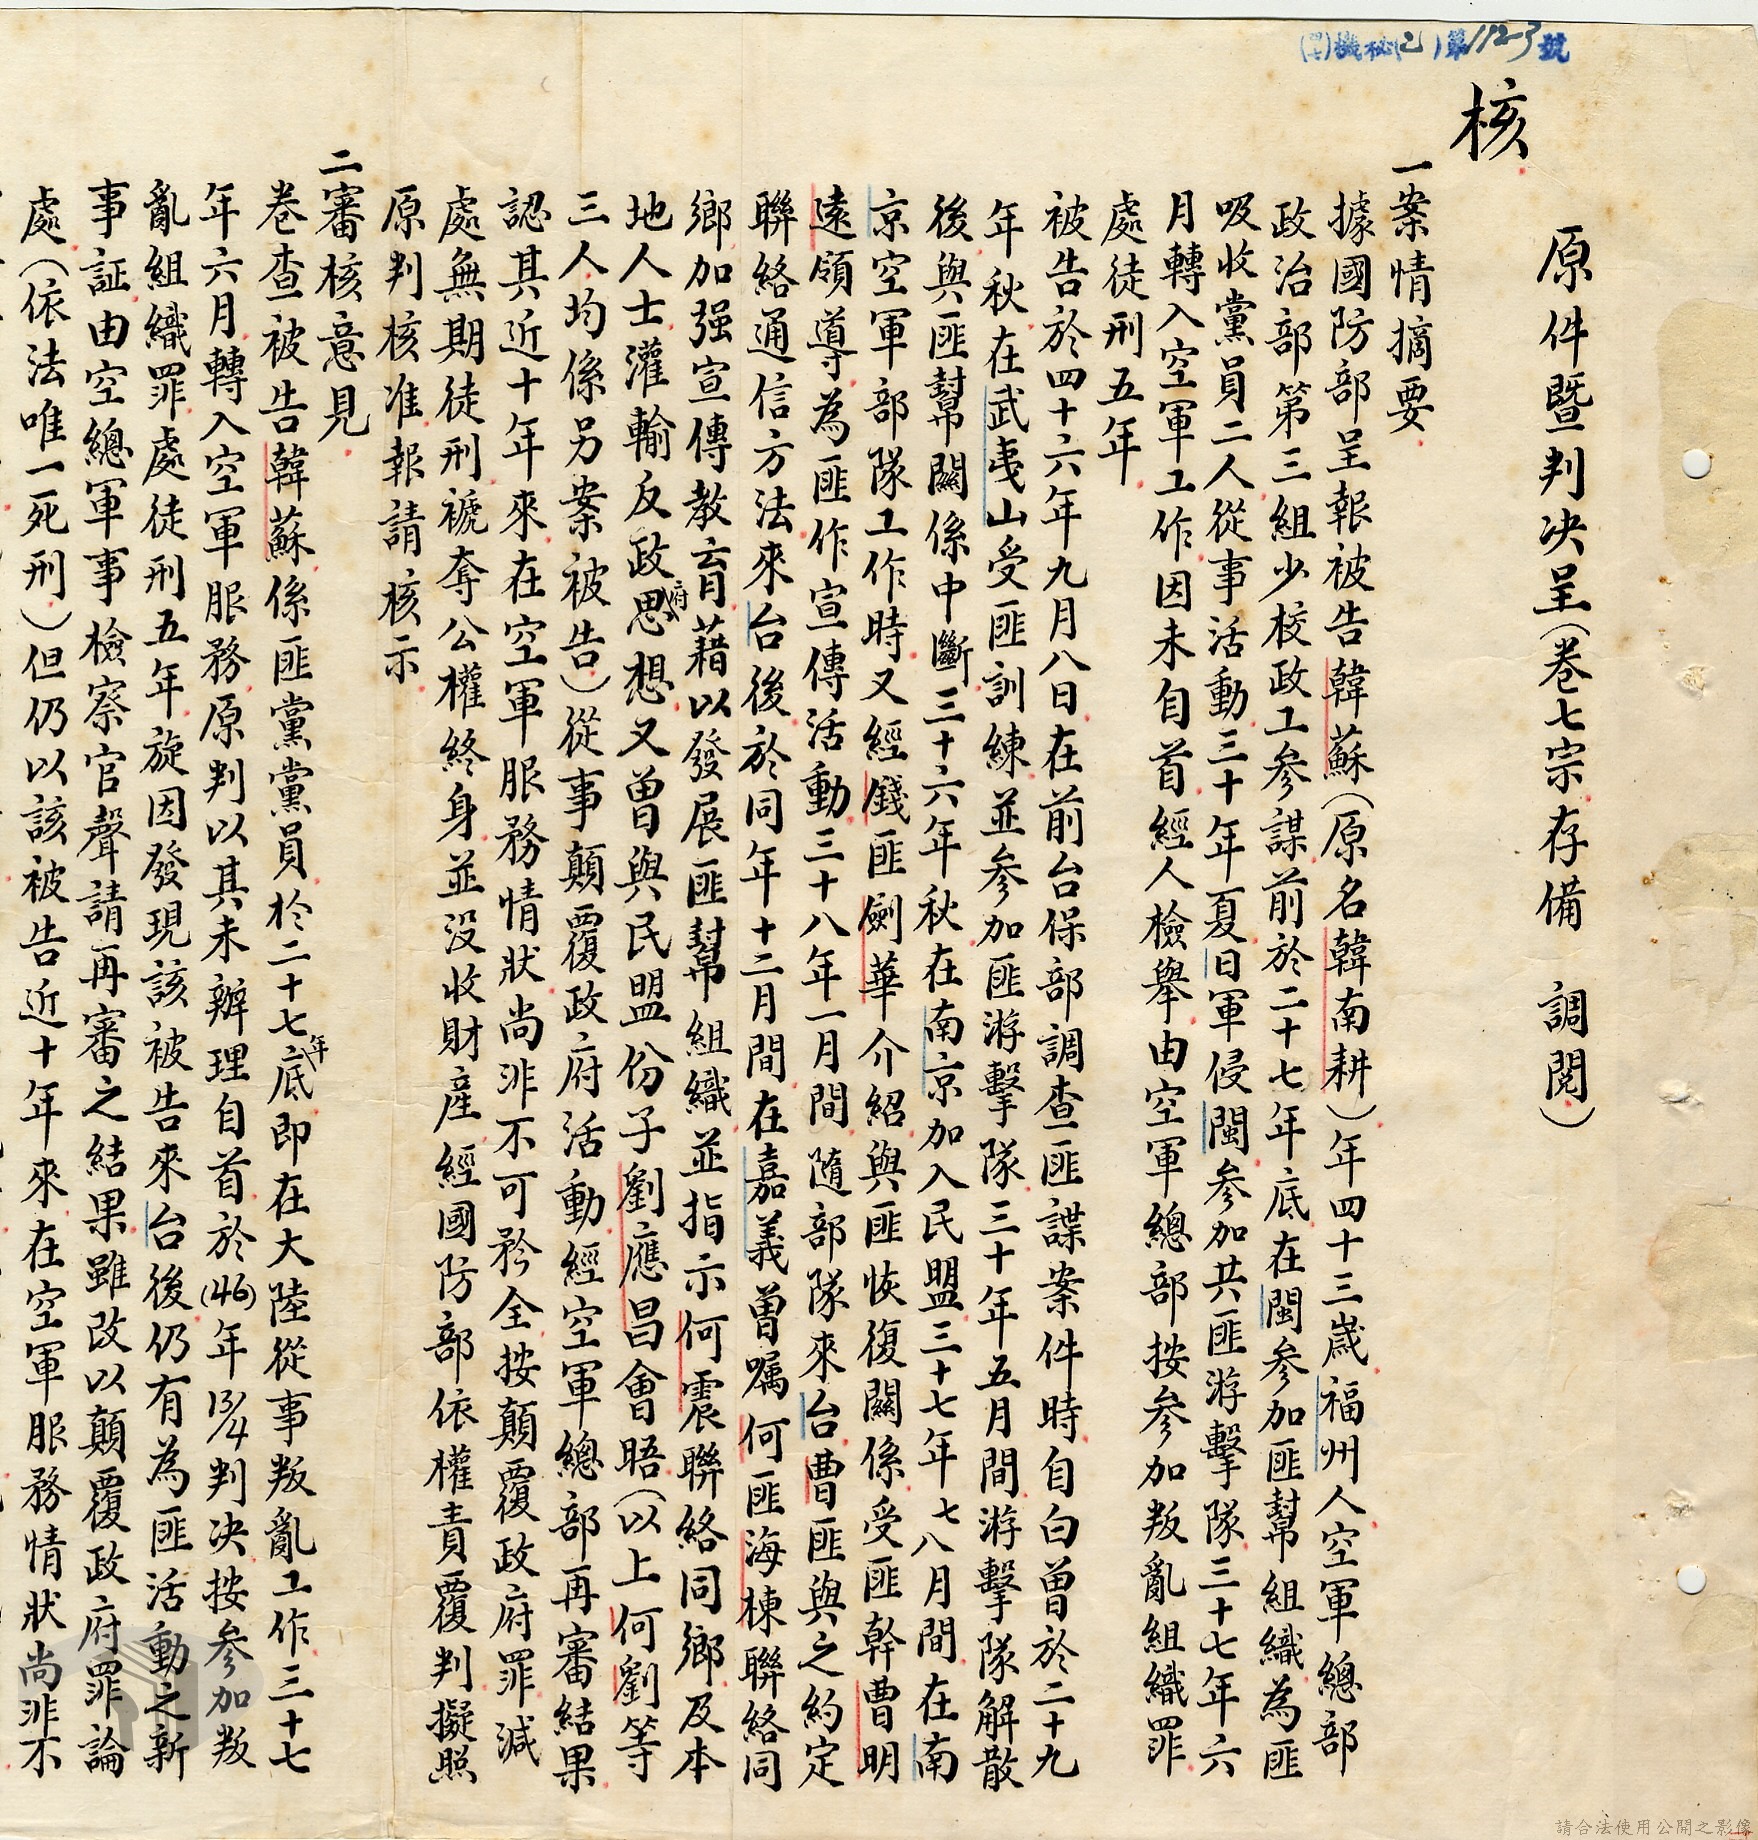 (四七)機秘(乙)第112-3號
核
原件暨判決呈(卷七宗存備 調閱)
一案情摘要
據國防部呈報被告韓蘇(原名韓南耕)年四十三歲福州人空軍總部
政治部第三組少校政工參謀前於二十七年底在閩參加匪幫組織為匪
吸收黨員二人從事活動三十年夏日軍侵閩參加共匪游擊隊三十七年六
月轉入空軍工作因未自首經人檢舉由空軍總部按參加叛亂組織罪
處徒刑五年
被告於四十六年九月八日在前台保部調查匪諜案件時自白曾於二十九
年秋在武夷山受匪訓練並參加匪游擊隊三十年五月間游擊隊解散
後與匪幫關係中斷三十六年秋在南京加入民盟三十七年七八月間在南
京空軍部隊工作時又經錢匪劍華介紹與匪恢復關係受匪幹曹明
遠領導為匪作宣傳活動三十八年一月間隨部隊來台曹匪與之約定
聯絡通信方法來台後於同年十二月間在嘉義曾囑何匪海棟聯絡同
鄉加强宣傳教育藉以發展匪幫組織並指示何震聯絡同鄉及本
地人士灌輸反政府思想又曾與民盟份子劉應昌會晤(以上何劉等
三人均係另案被告)從事顛覆政府活動經空軍總部再審結果
認其近十年來在空軍服務情狀尚非不可矜全按顛覆政府罪減
處無期徒刑褫奪公權終身並没收財產經國防部依權責覆判擬照
原判核准報請核示
二審核意見
卷查被告韓蘇係匪黨黨員於二十七年底即在大陸從事叛亂工作三十七
年六月轉入空軍服務原判以其未辦理自首於(46)年13/4判決按參加叛
亂組織罪處徒刑五年旋因發現該被告來台後仍有為匪活動之新
事証由空總軍事檢察官聲請再審之結果雖改以顛覆政府罪論
處(依法唯一死刑)但仍以該被告近十年來在空軍服務情狀尚非不
請合法使用公開之影像